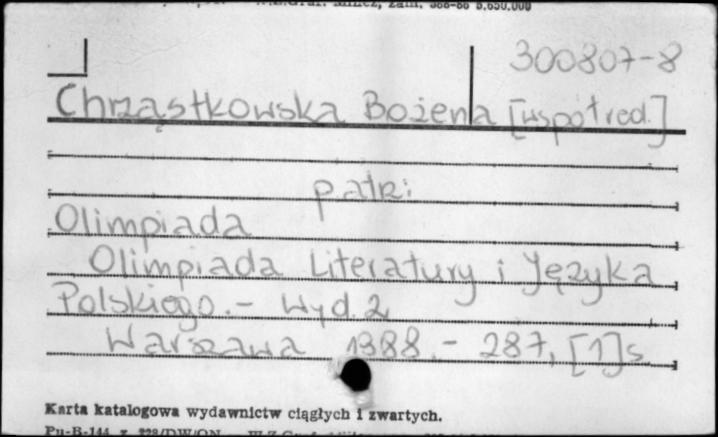 zam. 388-86 5.650.000
300807-8
Chrząstkowska Bożena [współred.]
patrz:
Olimpiada
Olimpiada Literatury i Języka
Polskiego.- Wyd. 2
Warszawa 1988.- 287, [1] s.
Karta katalogowa wydawnictw ciągłych i zwartych.
Pu-B-144